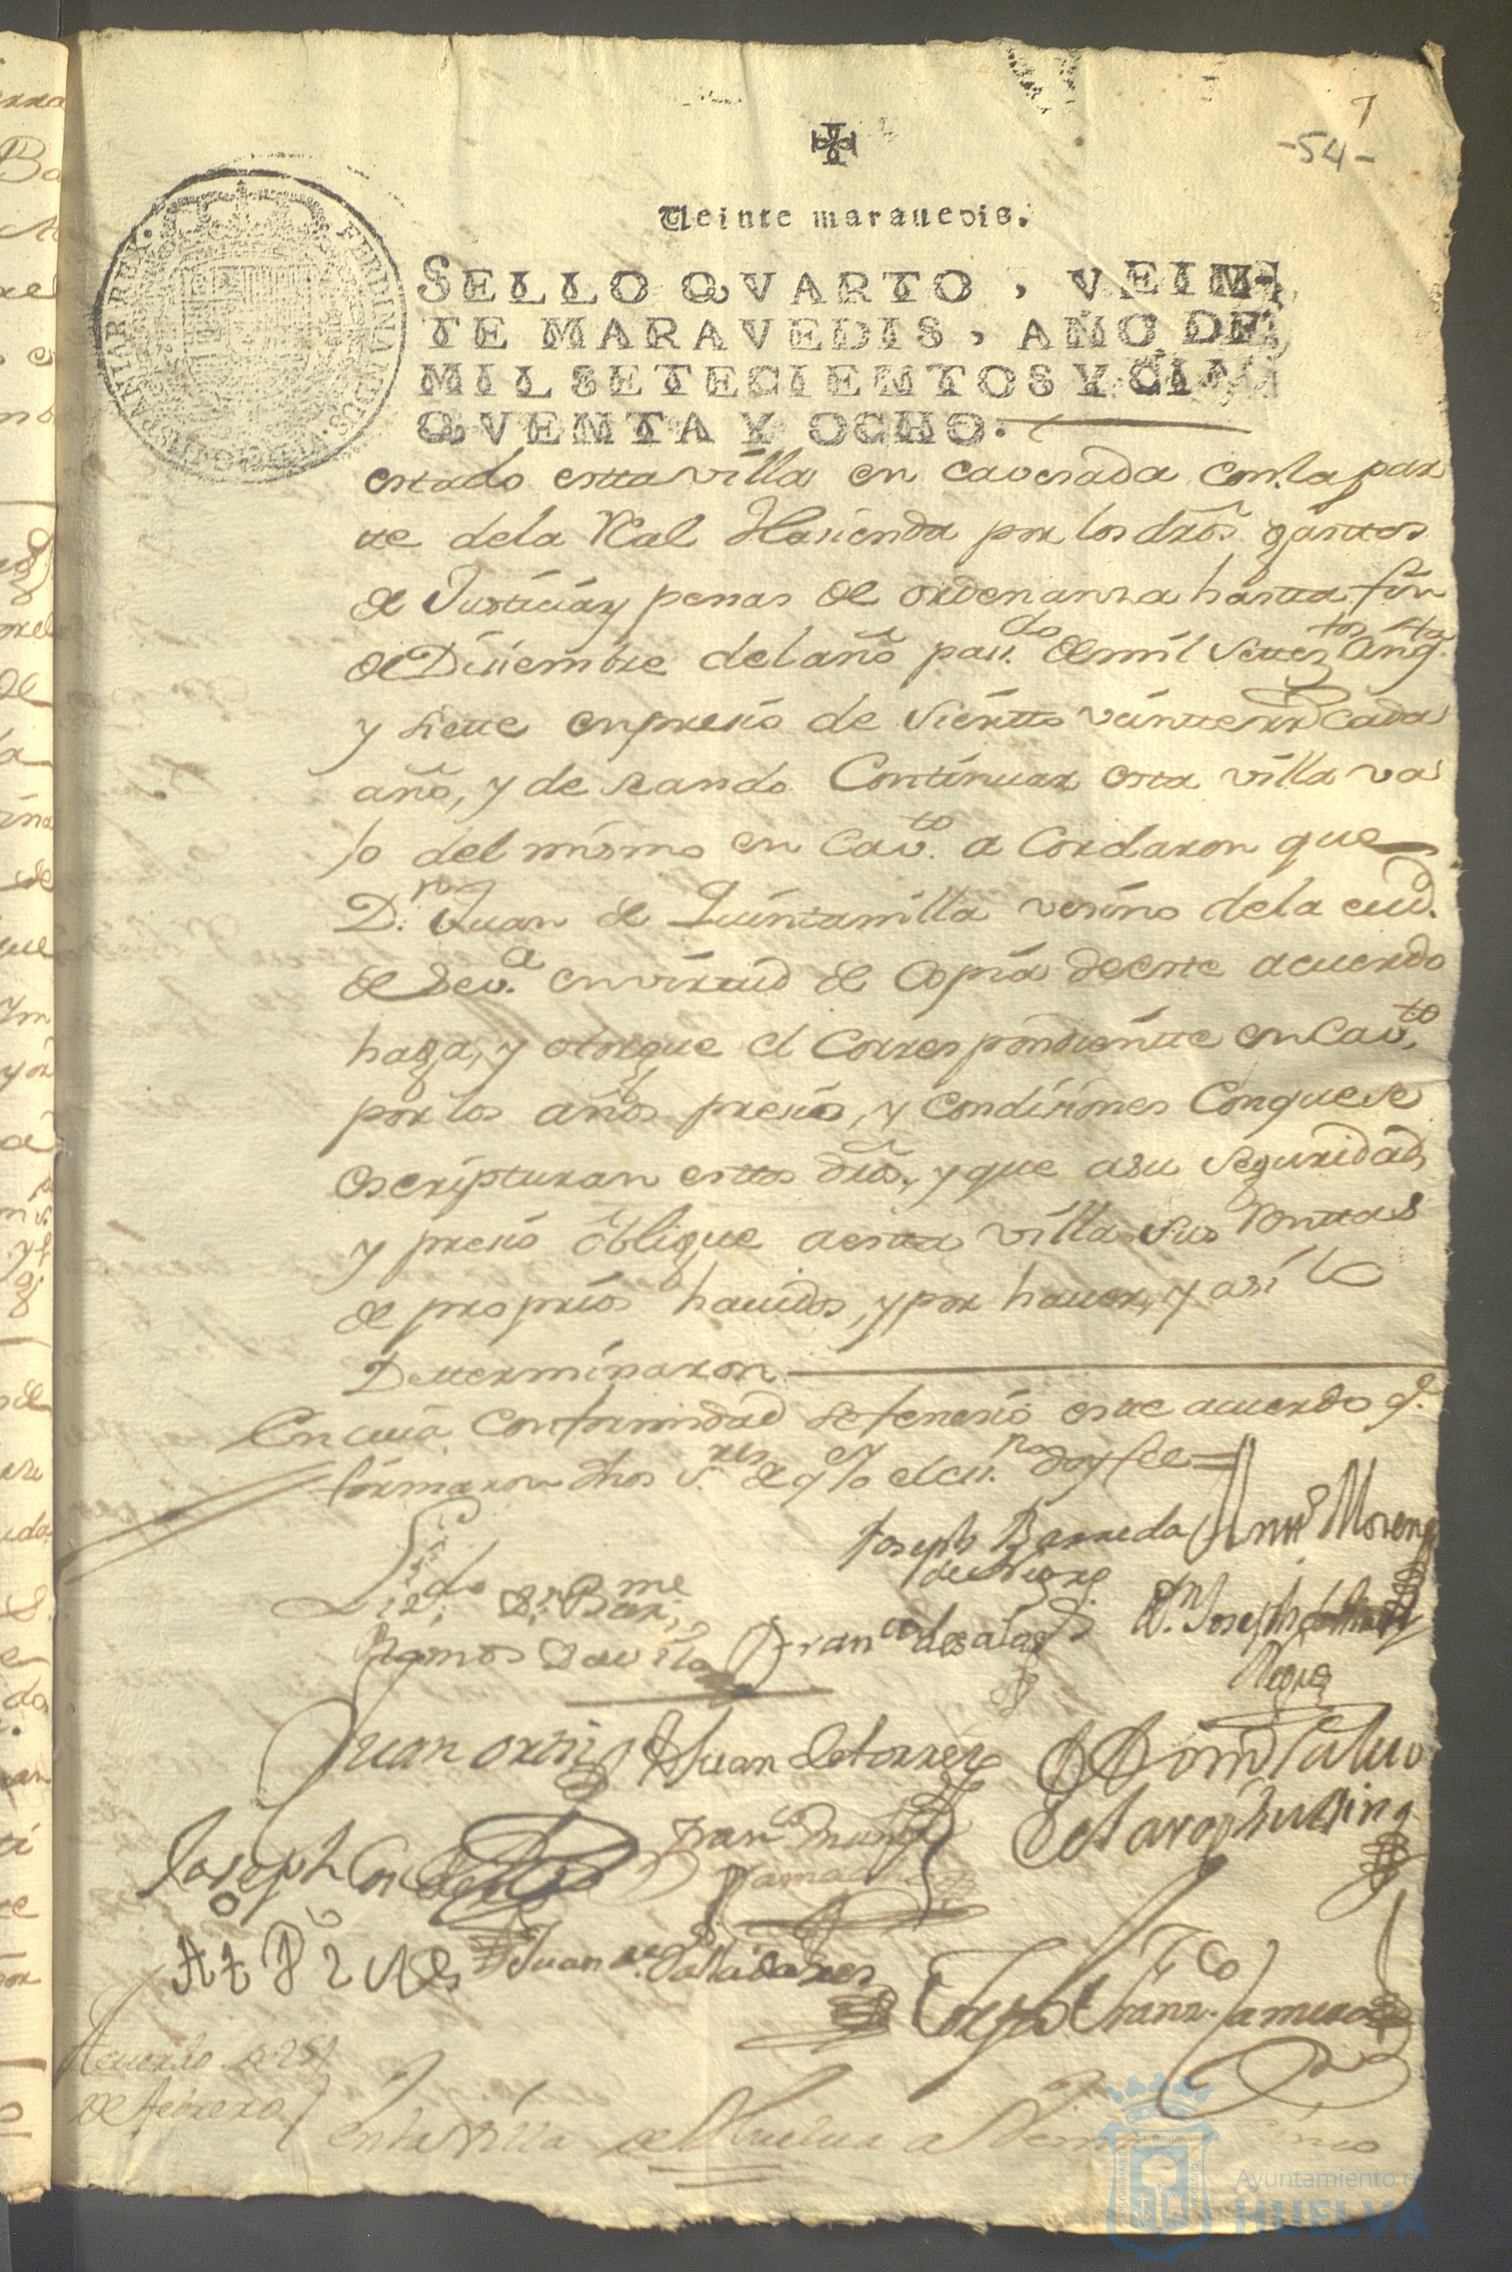 7
-54-
Veinte marauedis.
SELLO QVARTO, VEIN-
TE MARAVEDIS, AÑO DE
MIL SETECIENTOS Y CIN-
QVENTA Y OCHO.
FERDINANDUS · VI · D · G · HISPANIAR · REX ·
estado estta villa en cavesada con la par
te de la Real Hasienda por los dros. gasttos
de Justicia y penas de ordenansa hasta fin
de Disiembre del año pass.do de mil settez.tos sinq.ta
y siette en presio de sientto veintte rr cada
año, y deseando Continuar esta villa va
jo del mismo en Cav.to acordaron que
D.n Juan de Quintanilla vesino de la ciud.
de Sev.a en virtud de Copia de este acuerdo
haga, y otorgue el Correspondientte en Cav.to
por los años presio, y Condisiones Conque se
escripturan esttos dros., y que a su seguridad
y presio obligue a esta villa sus Renttas
de proprios havidos, y por haver, y asi lo
Determinaron
En cuia Conformidad se fenesio este acuerdo q.e
firmaron dhos S.res de q yo el ess.no doy fee =
Liz.do D.n Bar.me
Ramos Davila
Joseph Barreda
Ant.o Moreno
Fran.co de salas
D.n Joseph
Negro
Juan ortiz
Juan de torres
Joseph
Fran.co Muñoz
Juan de Valladares
Acuerdo de 25
de febrero
En la Villa de Huelva a Veinte cinco
Ayuntamiento de
HUELVA